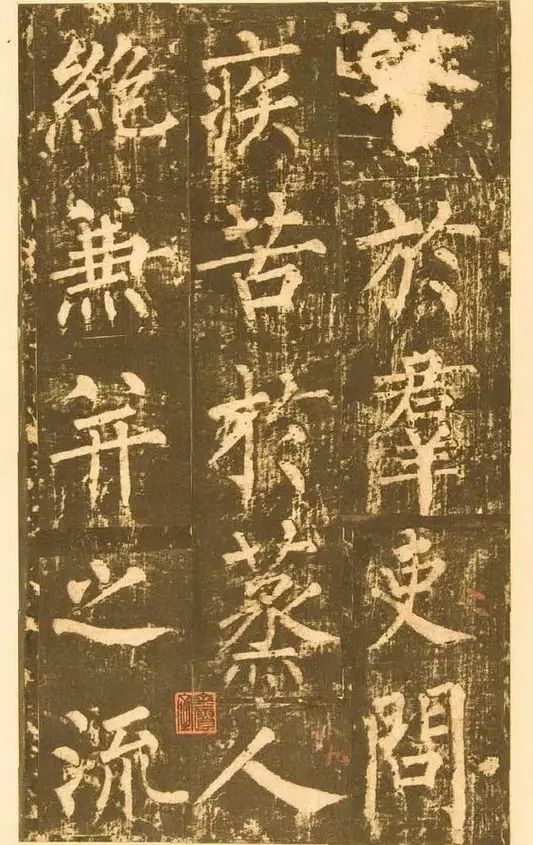 於羣吏問
疾苦於蒸人
絶兼并之流